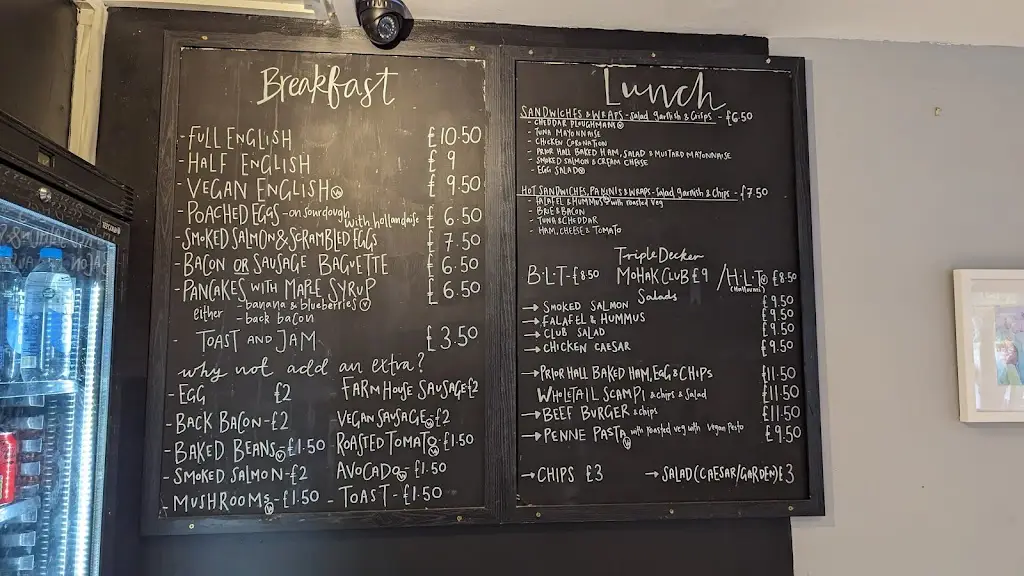 Breakfast
- FULL ENGLISH £10.50
- HALF ENGLISH £9
- VEGAN ENGLISH Ⓥ £9.50
- POACHED EGGS - on sourdough with hollandaise £6.50
- SMOKED SALMON & SCRAMBLED EGGS £7.50
- BACON OR SAUSAGE BAGUETTE £6.50
- PANCAKES WITH MAPLE SYRUP £6.50
either - banana & blueberries Ⓥ
- back bacon
- TOAST AND JAM £3.50
why not add an extra?
- EGG £2 FARMHOUSE SAUSAGE £2
- BACK BACON - £2 VEGAN SAUSAGE Ⓥ £2
- BAKED BEANS Ⓥ £1.50 ROASTED TOMATO Ⓥ £1.50
- SMOKED SALMON - £2 AVOCADO Ⓥ - £1.50
- MUSHROOMS Ⓥ - £1.50 - TOAST - £1.50
Lunch
SANDWICHES & WRAPS - salad garnish & crisps - £6.50
- CHEDDAR PLOUGHMANS Ⓥ
- TUNA MAYONNAISE
- CHICKEN CORONATION
- PRIOR HALL BAKED HAM, SALAD & MUSTARD MAYONNAISE
- SMOKED SALMON & CREAM CHEESE
- EGG SALAD Ⓥ
HOT SANDWICHES, PANINIS & WRAPS - salad garnish & chips - £7.50
- FALAFEL & HUMMUS Ⓥ with roasted veg
- BRIE & BACON
- TUNA & CHEDDAR
- HAM, CHEESE & TOMATO
Triple Decker
B·L·T - £8.50 MOHAK CLUB £9 / H·L·T Ⓥ £8.50
(Halloumi)
Salads
→ SMOKED SALMON £9.50
→ FALAFEL & HUMMUS £9.50
→ CLUB SALAD £9.50
→ CHICKEN CAESAR £9.50
→ PRIOR HALL BAKED HAM, EGG & CHIPS £11.50
WHOLETAIL SCAMPI & chips & salad £11.50
→ BEEF BURGER & chips £11.50
→ PENNE PASTA Ⓥ with roasted veg with vegan pesto £9.50
→ CHIPS £3 → SALAD (CAESAR/GARDEN) £3